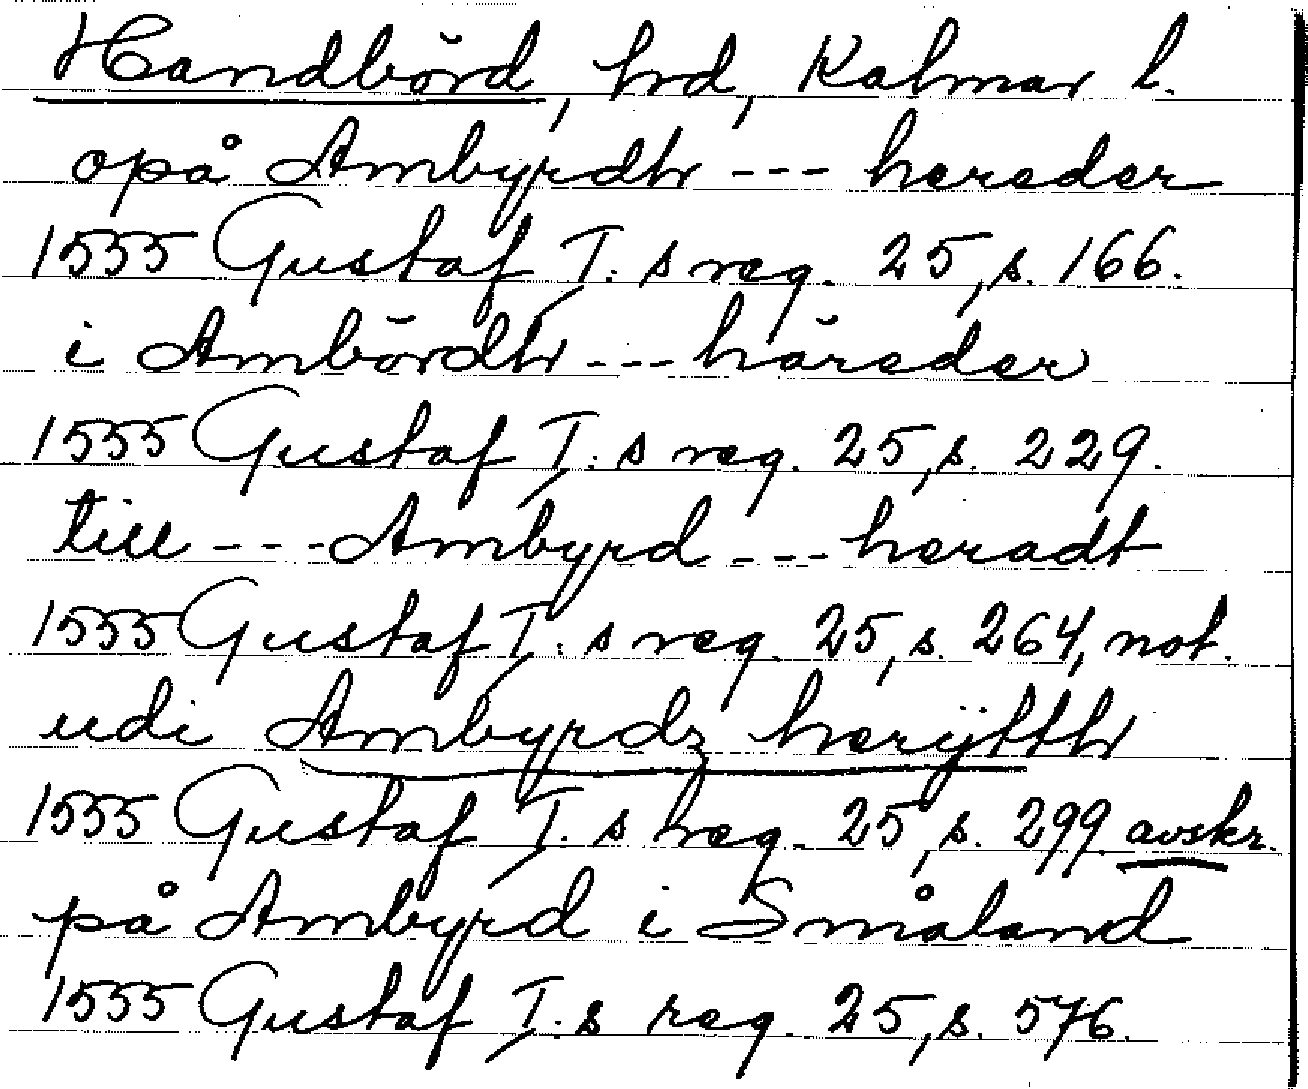 Handbörd, hrd, Kalmar l.
opå Ambyrdh --- hereder
1555 Gustaf I:s reg. 25, s. 166.
i Ambördh --- häreder
1555 Gustaf I:s reg. 25, s. 229.
till --- Ambyrd --- heradt
1555 Gustaf I:s reg. 25, s. 264, not.
udi Ambyrdz herÿtth
1555 Gustaf I:s reg. 25, s. 299 avskr.
på Ambyrd i Småland
1555 Gustaf I:s reg. 25, s. 576.